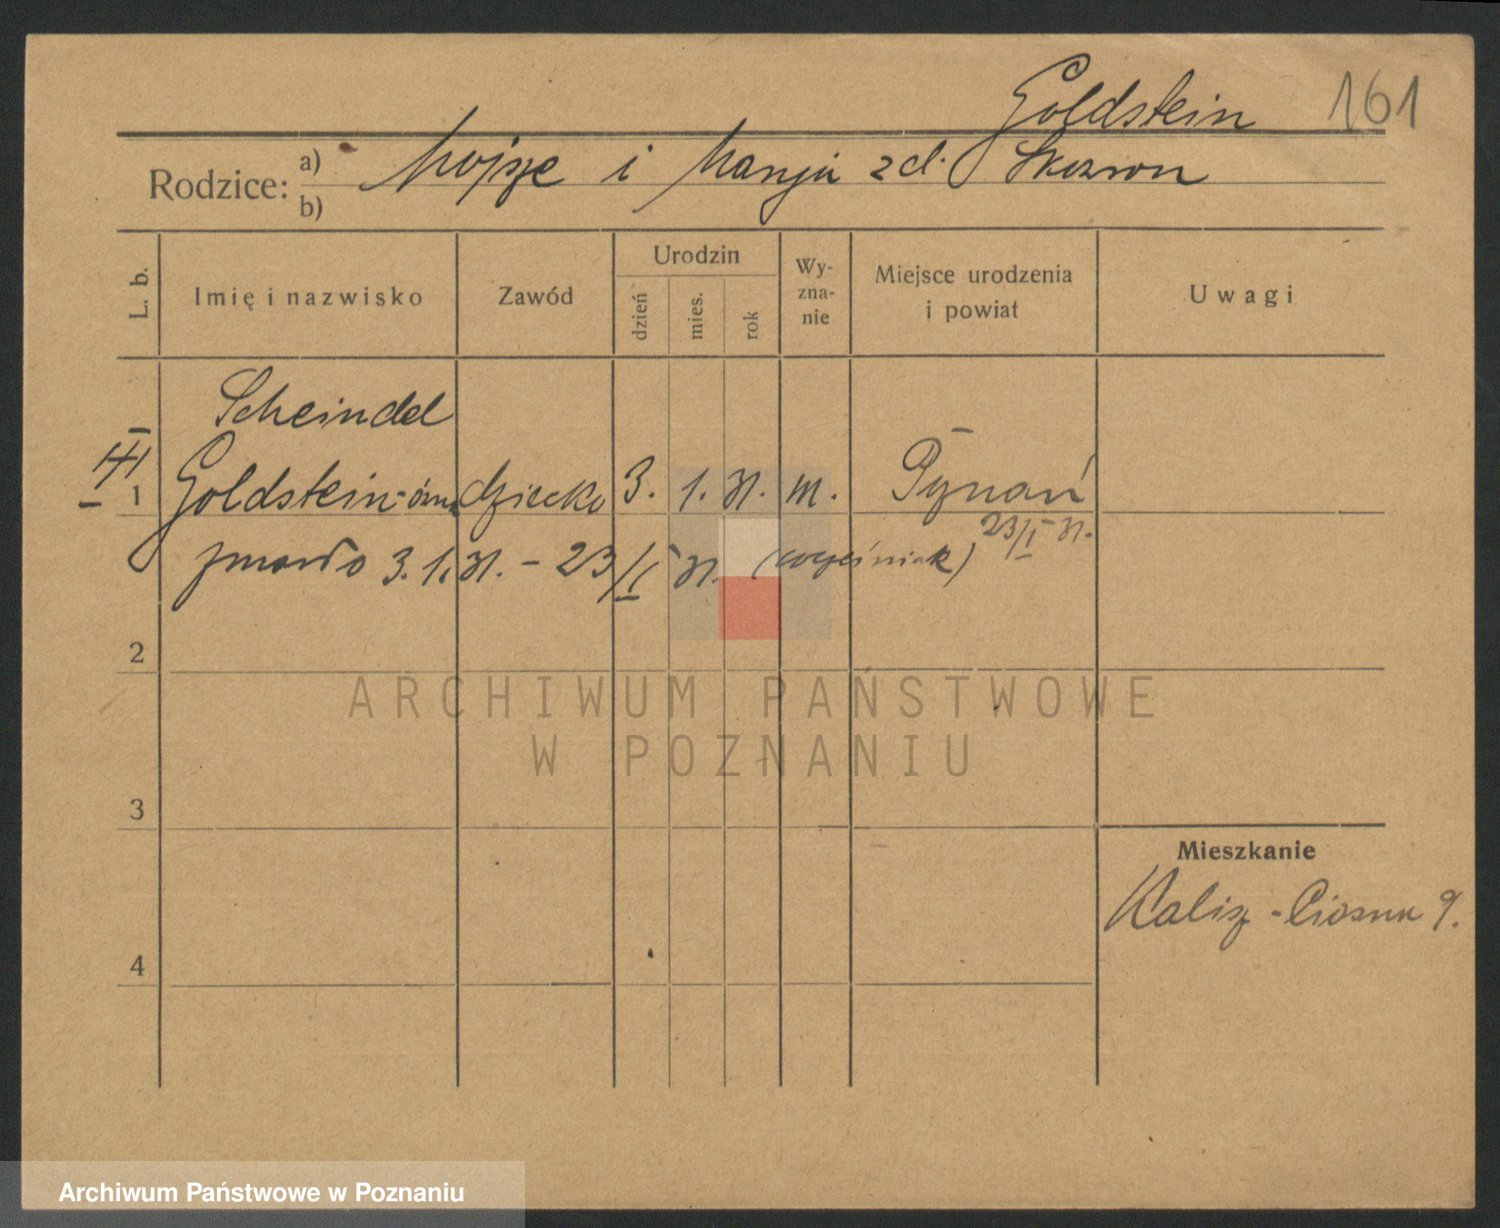 Goldstein 161
Rodzice: a) Mojsze i Marija zd. Skozron
b)
L. b.
Imię i nazwisko
Zawód
Urodzin
dzień
mies.
rok
Wy-
zna-
nie
Miejsce urodzenia
i powiat
Uwagi
Scheindel
1 Goldstein-ówna dziecko 3. 1. 31. m. Poznań
23/I 31.
zmarło 3. 1. 31. - 23/I 31. (wcześniak)
2
ARCHIWUM PAŃSTWOWE
W POZNANIU
3
Mieszkanie
Kalisz - Ciasna 9.
4
Archiwum Państwowe w Poznaniu